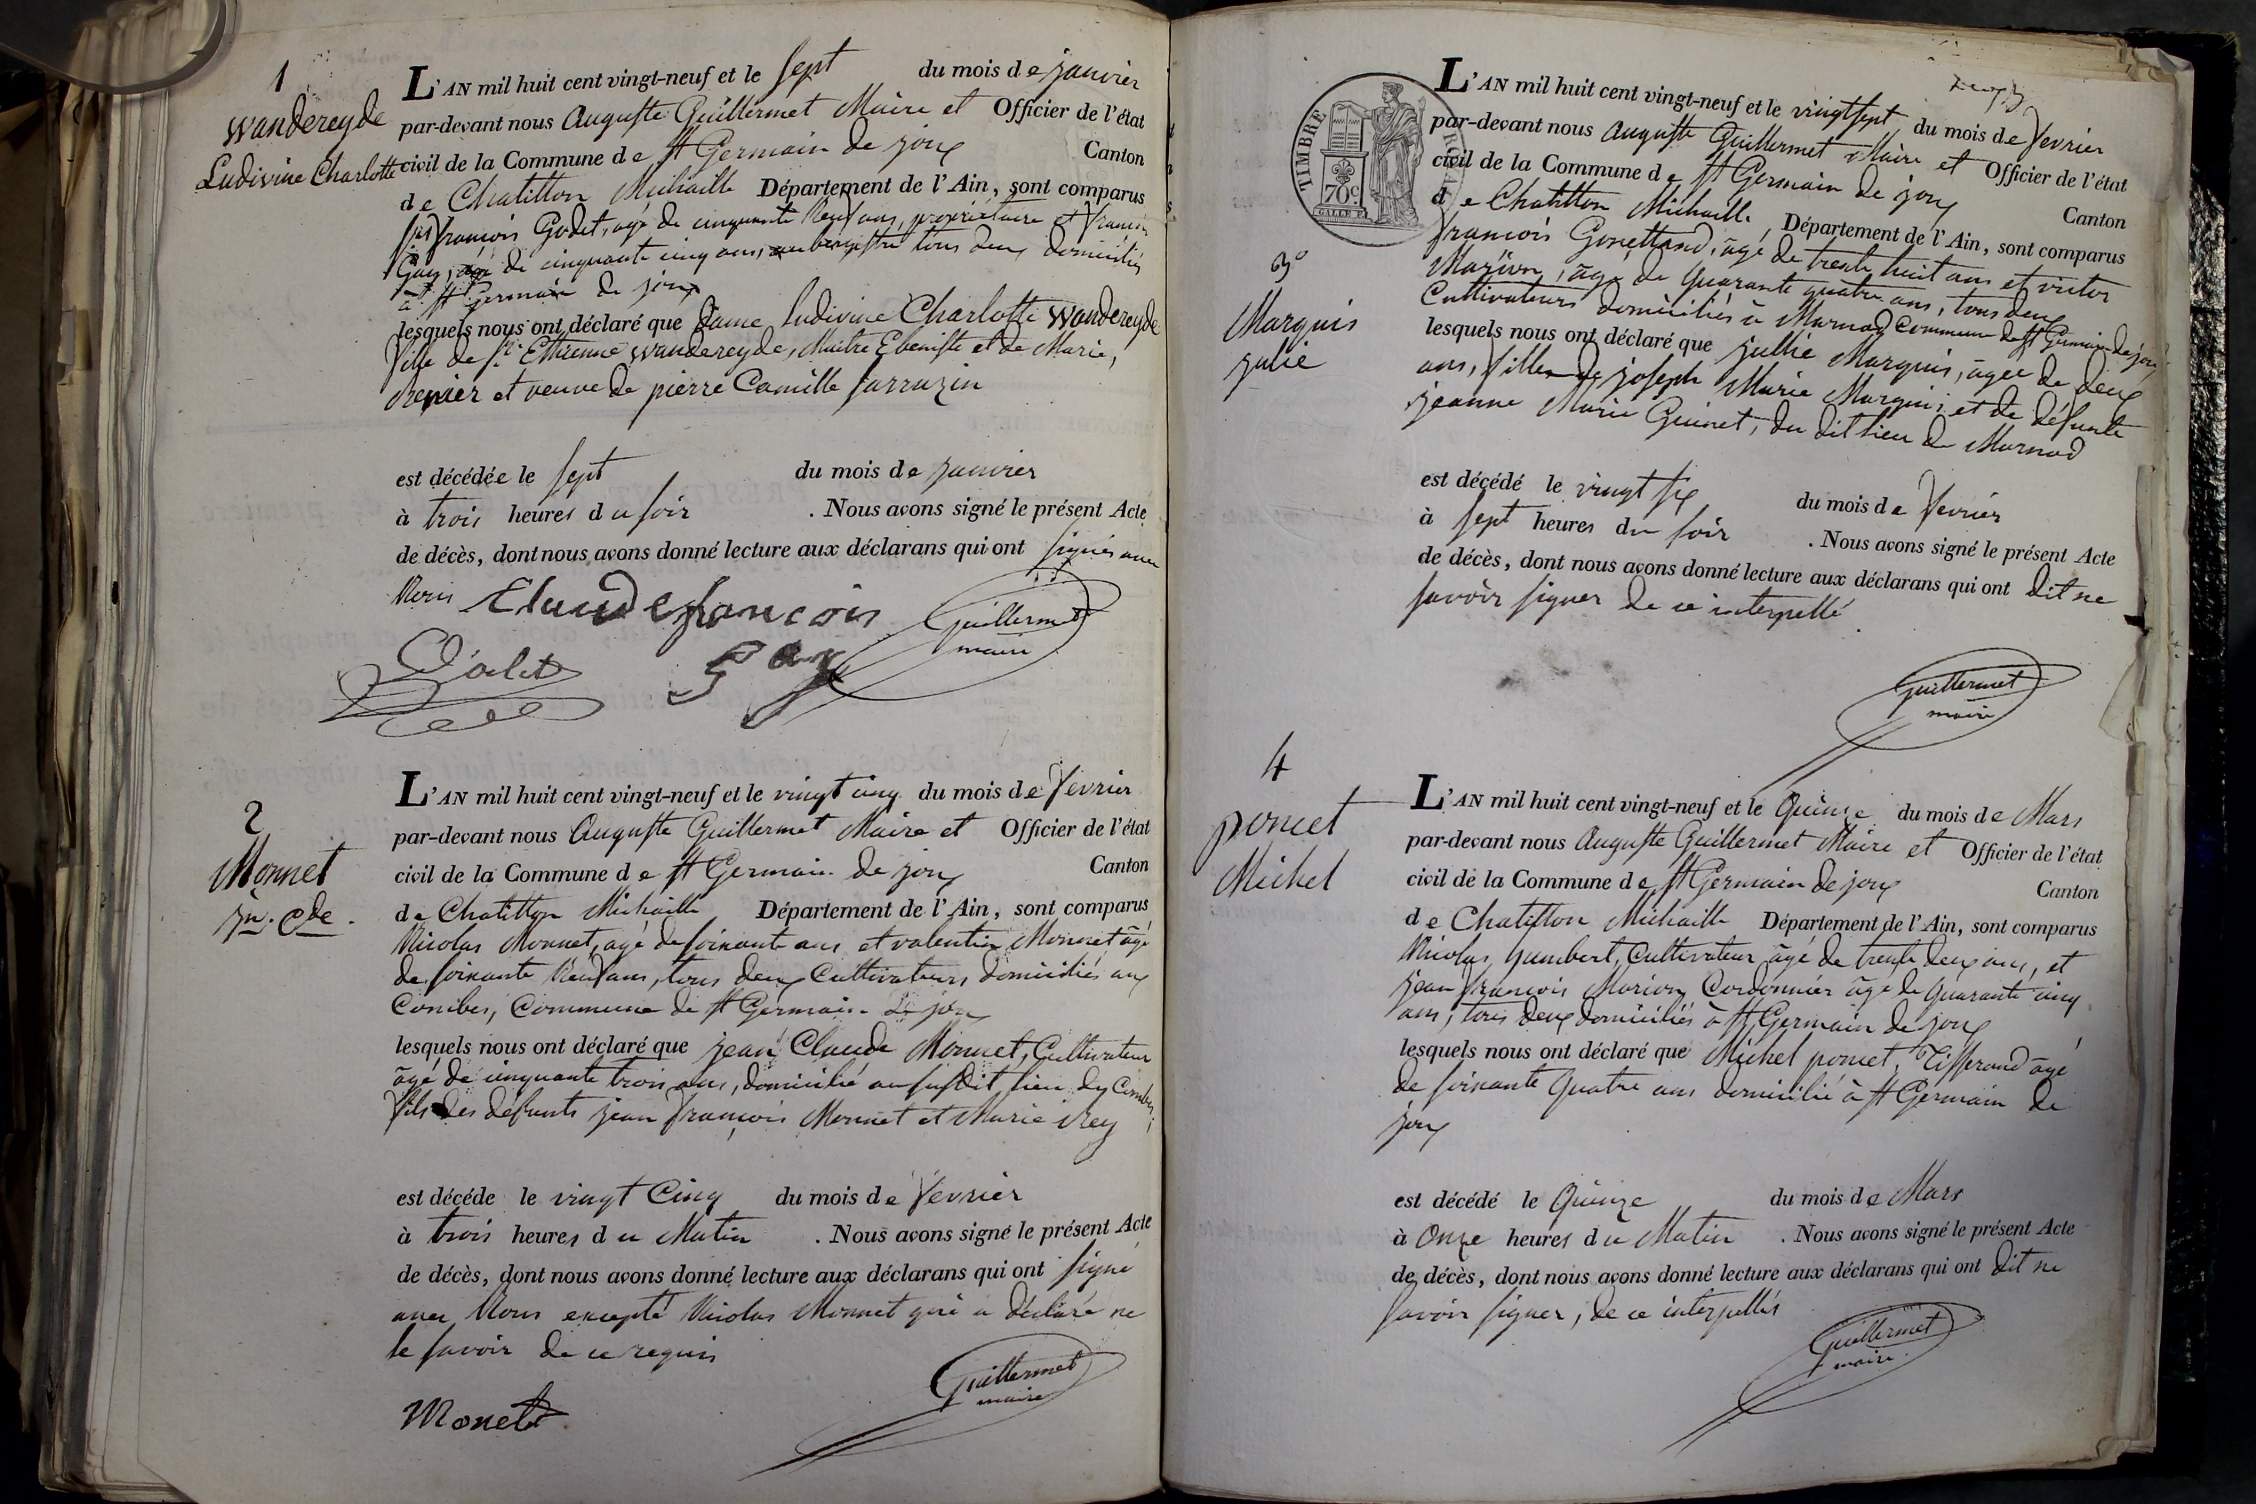 1
Wandereyde
Ludivine Charlotte
L'AN mil huit cent vingt-neuf et le sept du mois de janvier
par-devant nous Auguste Guillermet Maire et Officier de l'état
civil de la Commune de St Germain de joux Canton
de Chatillon Michaille Département de l'Ain, sont comparus
françois Godet, agé de cinquante neuf ans, propriétaire et françois
Gay, agé de cinquante cinq ans, aubergiste tous deux domiciliés
à St Germain de joux
lesquels nous ont déclaré que Dame ludivine Charlotte Wandereyde
fille de Etienne Wandereyde, Maitre Ebeniste et de Marie,
et veuve de pierre Camille Sarrazin
est décédée le sept du mois de janvier
à trois heures du soir . Nous avons signé le présent Acte
de décès, dont nous avons donné lecture aux déclarans qui ont signés avec
Nous Claude françois
Guillermet
maire
Godet Gay
2
Monnet
jn. Cde.
L'AN mil huit cent vingt-neuf et le vingt cinq du mois de fevrier
par-devant nous Auguste Guillermet Maire et Officier de l'état
civil de la Commune de St Germain de joux Canton
de Chatillon Michaille Département de l'Ain, sont comparus
Nicolas Monnet, agé de soixante ans et valentin Monnet âgé
de soixante Neuf ans, tous deux Cultivateurs domiciliés aux
Combes, Commune de St Germain de joux
lesquels nous ont déclaré que jean Claude Monnet, Cultivateur
âgé de cinquante trois ans, domicilié au susdit lieu des Combes,
fils des défunts jean françois Monnet et Marie Rey
est décédé le vingt Cinq du mois de fevrier
à trois heures du Matin . Nous avons signé le présent Acte
de décès, dont nous avons donné lecture aux déclarans qui ont signé
avec Nous excepté Nicolas Monnet qui a déclaré ne
le savoir de ce requis
Guillermet
maire
Monet
TIMBRE ROYAL
70 c.
3o
Marquis
julie
L'AN mil huit cent vingt-neuf et le vingt sept du mois de fevrier
par-devant nous Auguste Guillermet Maire et Officier de l'état
civil de la Commune de St Germain de joux Canton
de Chatillon Michaille, Département de l'Ain, sont comparus
françois Gonettand, âgé de trente huit ans et victor
Marion, âgé de Quarante quatre ans, tous deux
Cultivateurs domiciliés à Marnod Commune de St Germain de joux
lesquels nous ont déclaré que jullie Marquis, âgée de deux
ans, fille de joseph Marie Marquis et de défunte
jeanne Marie Guinet, du dit lieu de Marnod
est décédé le vingt six du mois de fevrier
à sept heures du soir . Nous avons signé le présent Acte
de décès, dont nous avons donné lecture aux déclarans qui ont dit ne
savoir signer de ce interpellé
Guillermet
maire
4
poncet
Michel
L'AN mil huit cent vingt-neuf et le Quinze du mois de Mars
par-devant nous Auguste Guillermet Maire et Officier de l'état
civil de la Commune de St Germain de joux Canton
de Chatillon Michaille Département de l'Ain, sont comparus
Nicolas humbert, Cultivateur âgé de trente deux ans, et
jean françois Marion, Cordonnier âgé de Quarante cinq
ans, tous deux domiciliés à St Germain de joux
lesquels nous ont déclaré que Michel poncet, Tisserand âgé
de soixante Quatre ans domicilié à St Germain de
joux
est décédé le Quinze du mois de Mars
à Onze heures du Matin . Nous avons signé le présent Acte
de décès, dont nous avons donné lecture aux déclarans qui ont dit ne
savoir signer, de ce interpellés
Guillermet
maire